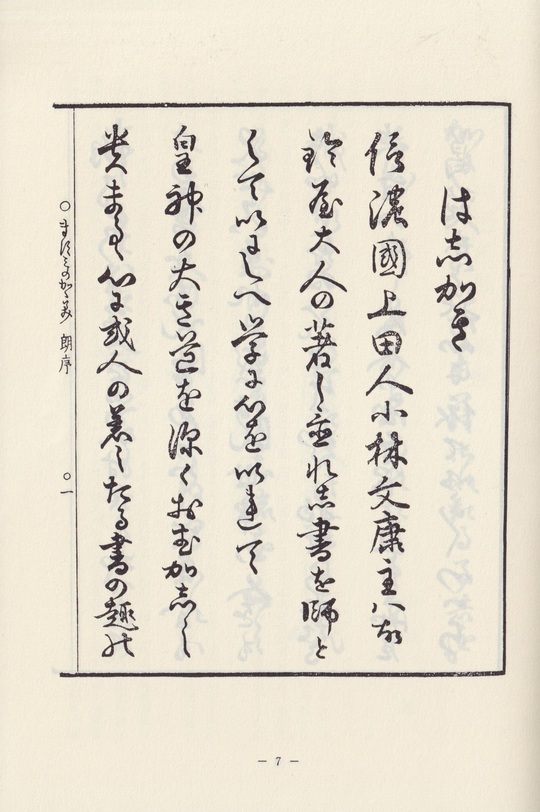 はしがき
信濃國上田人小林文康主ハ故
鈴屋大人の著し並れし書を師と
して以にしへ学に心を以れて
皇神の大き道を深くおむかしく
貴まるゝ心に或人の著したる書の趣の
○ますみのかゝみ 朗序 ○一
－ 7 －